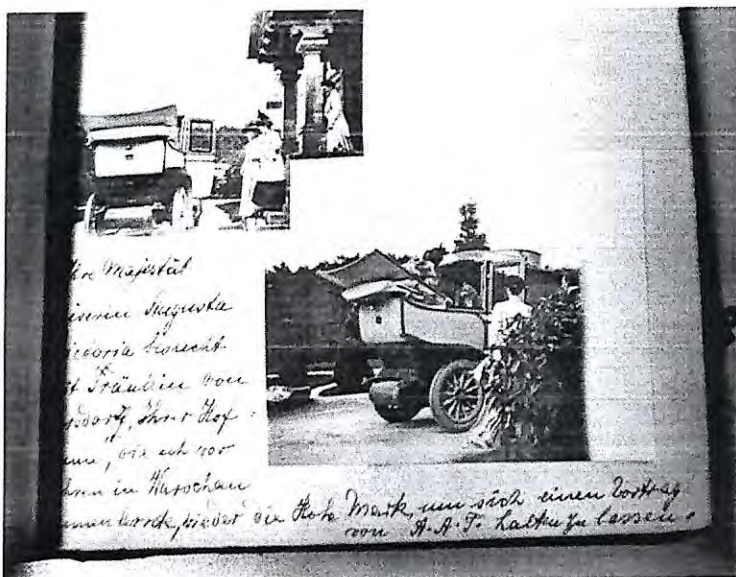 Ihre Majestät
iserin Augusta
ictoria besucht
t Fräulein von
sdorff, Ihrer Hof
die ich vor
hren in Warschau
nnenlernte, wieder die Hohe Mark, um sich einen Vortrag
von A.A.F. halten zu lassen.